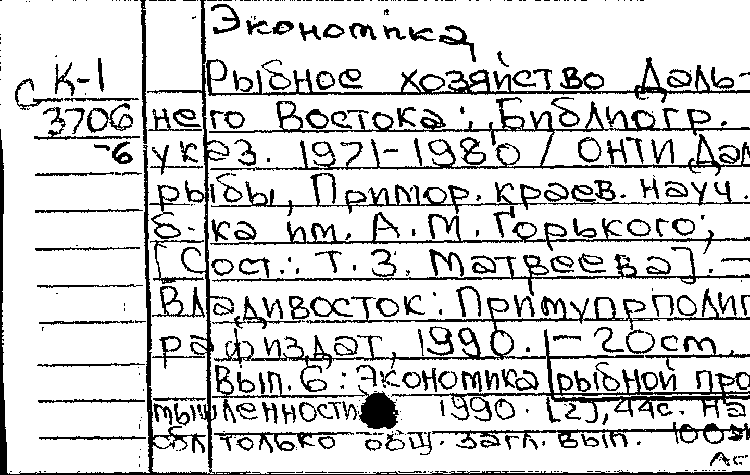 Экономика,
С К-1
3706
-6
Рыбное хозяйство Даль-
него Востока: Библиогр.
указ. 1971-1980 / ОНТИ Дал
рыбы, Примор. краев. науч.
б-ка им. А.М. Горького;
[Сост.: Т.З. Матвеева]. —
Владивосток: Примупрполиг
рафиздат, 1990. — 20см.
Вып. 6: Экономика рыбной про
мышленности 1990. [2], 44с. На
обл только общ. загл. вып. 100э